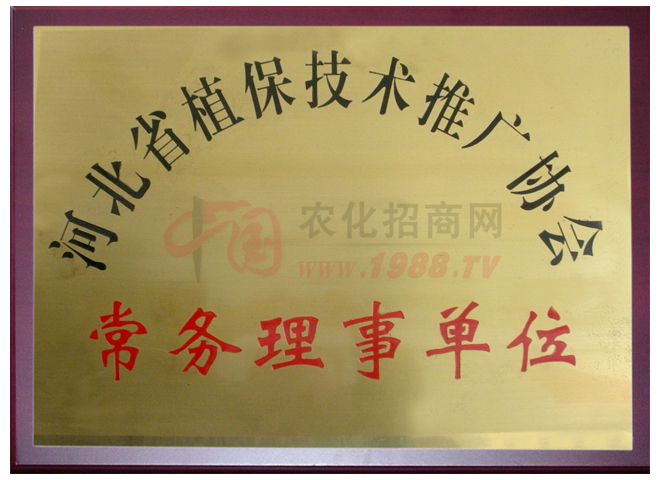 河北省植保技术推广协会
农化招商网
www.1988.TV
常务理事单位